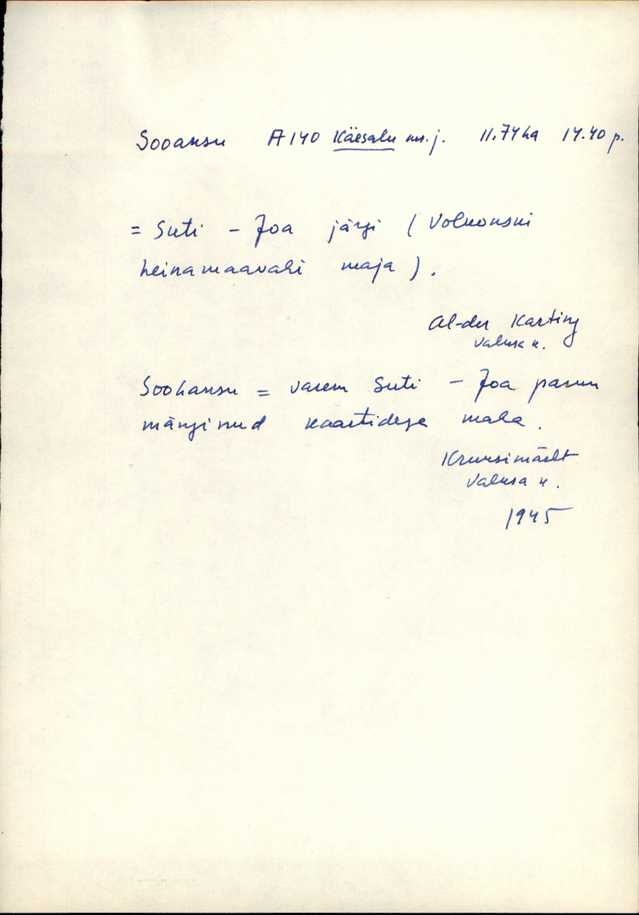 Sooansu A140 Käesalu ms.j. 11.74ha 14.40 p.
= Suti - Joa järgi (Volkonski
heinamaavahi maja).
Al-der Karting
Valksa k.
Soohansu = varem Suti - Joa parun
mänginud kaartidega maha.
Kruusimäelt
Valksa k.
1945